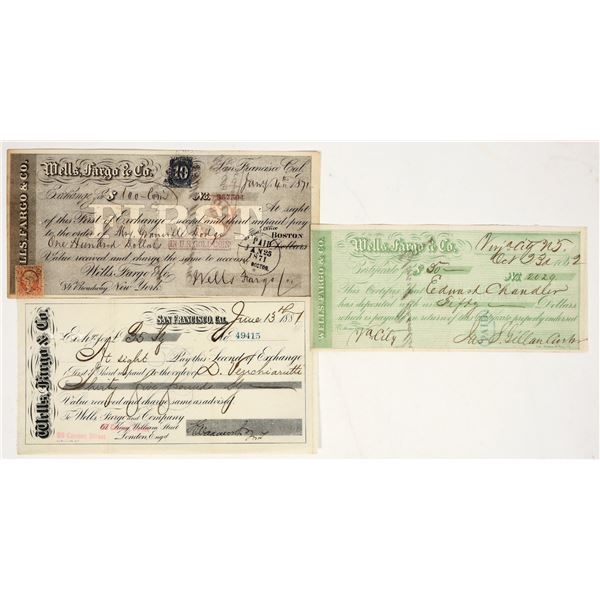 WELLS, FARGO & CO.
Wells, Fargo & Co.
San Francisco Cal.
Jany 4th 1871
Exchange for $100 - Coin No.
FIRST
At sight
of this First of Exchange second and third unpaid pay
to the order of Mrs Granville Dodge
BOSTON
One Hundred Dollars
IN U.S. GOLD COIN
PAID
JAN 25
1871
BOSTON
Dollars
Value received and charge the same to account
Wells Fargo & Co
84 Broadway New York
Wells Fargo & Co
WELLS, FARGO & CO.
Wells, Fargo & Co.
Virg City N.S.
Oct 23d 1862
Certificate $50 - No. 2029
This Certifies that Edward Chandler
has deposited with us Fifty Dollars
which is payable on return of this Certificate properly endorsed
Va City
Wells, Fargo & Co.
SAN FRANCISCO, CAL. June 13th 1881
Exch for £35 Stg No 49415
At sight Pay this Second of Exchange
First & Third unpaid to the order of D.
Thirty five pounds Stg
Value received and charge same as advised.
To Wells Fargo and Company
King William Street
London Engd